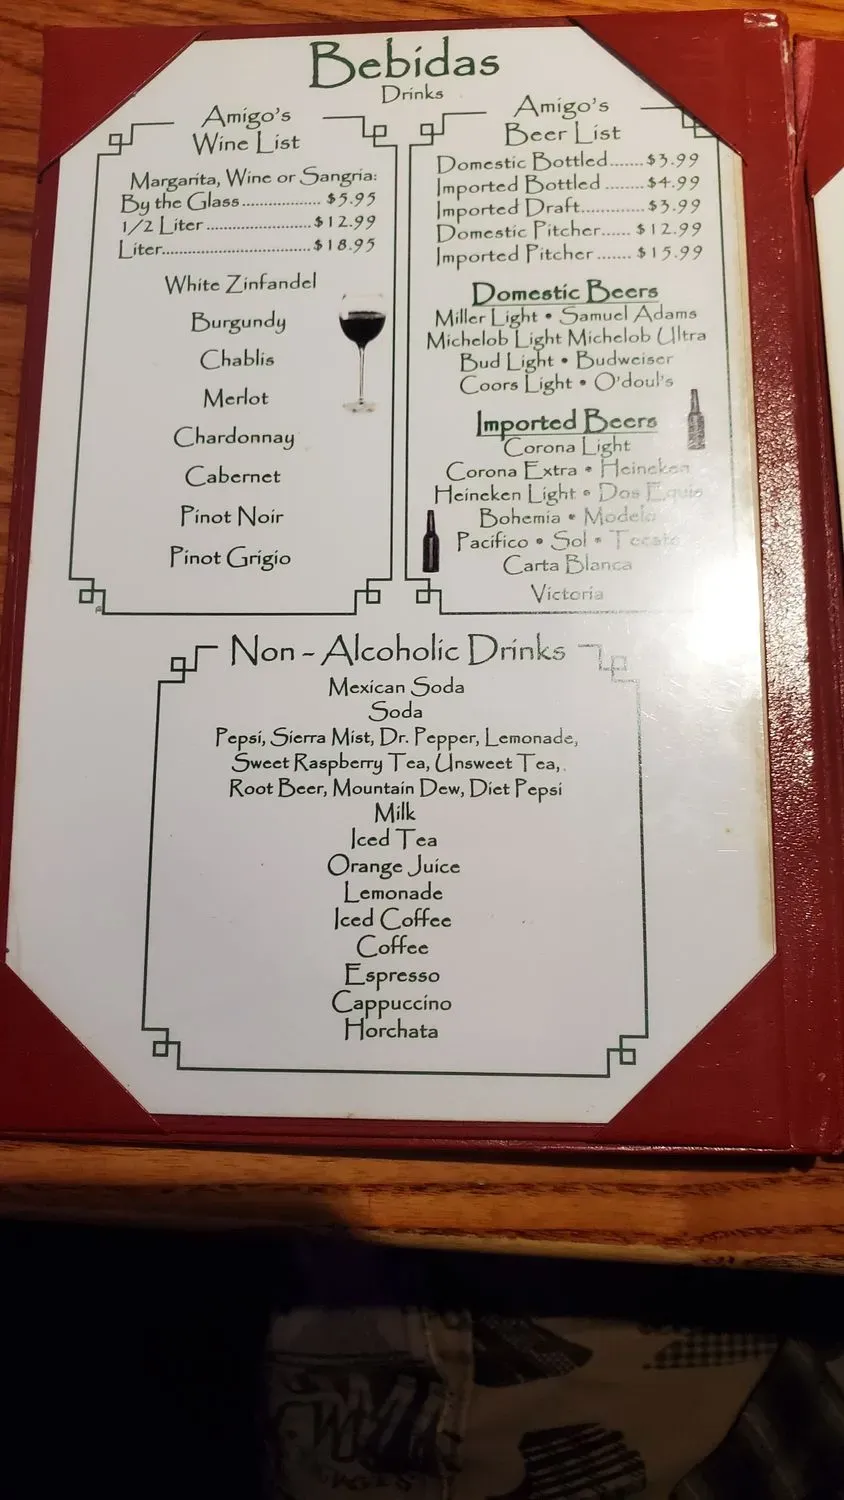 Bebidas
Drinks
Amigo's
Wine List
Margarita, Wine or Sangria:
By the Glass.................. $5.95
1/2 Liter ........................$12.99
Liter..................................$18.95
White Zinfandel
Burgundy
Chablis
Merlot
Chardonnay
Cabernet
Pinot Noir
Pinot Grigio
Amigo's
Beer List
Domestic Bottled.......$3.99
Imported Bottled ........$4.99
Imported Draft.............$3.99
Domestic Pitcher...... $12.99
Imported Pitcher....... $15.99
Domestic Beers
Miller Light • Samuel Adams
Michelob Light Michelob Ultra
Bud Light • Budweiser
Coors Light • O'doul's
Imported Beers
Corona Light
Corona Extra • Heineken
Heineken Light • Dos Equis
Bohemia • Modelo
Pacifico • Sol • Tecate
Carta Blanca
Victoria
Non - Alcoholic Drinks
Mexican Soda
Soda
Pepsi, Sierra Mist, Dr. Pepper, Lemonade,
Sweet Raspberry Tea, Unsweet Tea,.
Root Beer, Mountain Dew, Diet Pepsi
Milk
Iced Tea
Orange Juice
Lemonade
Iced Coffee
Coffee
Espresso
Cappuccino
Horchata